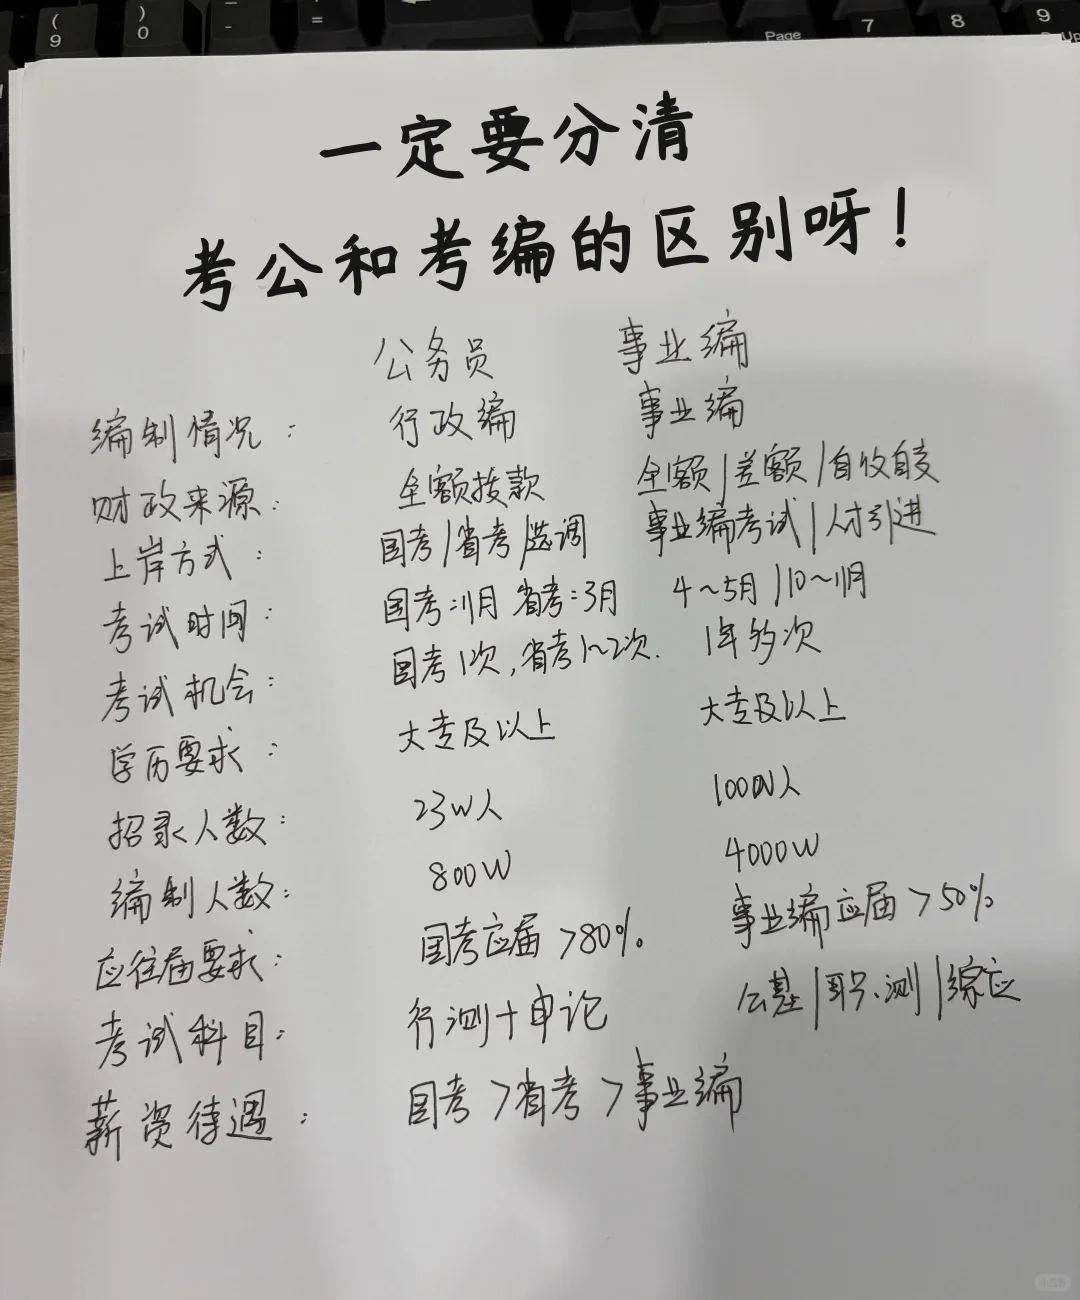 ( 9
) 0
-
=
Page
7
8
9
PgUp
一定要分清
考公和考编的区别呀!
公务员 事业编
编制情况: 行政编 事业编
财政来源: 全额拨款 全额|差额|自收自支
上岸方式: 国考|省考|选调 事业编考试|人才引进
考试时间: 国考:11月 省考:3月 4~5月|10~11月
考试机会: 国考1次,省考1~2次. 1年多次
学历要求: 大专及以上 大专及以上
招录人数: 23W人 100W人
编制人数: 800W 4000W
应往届要求: 国考应届>80% 事业编应届>50%
考试科目: 行测+申论 公基|职测|综应
薪资待遇: 国考>省考>事业编